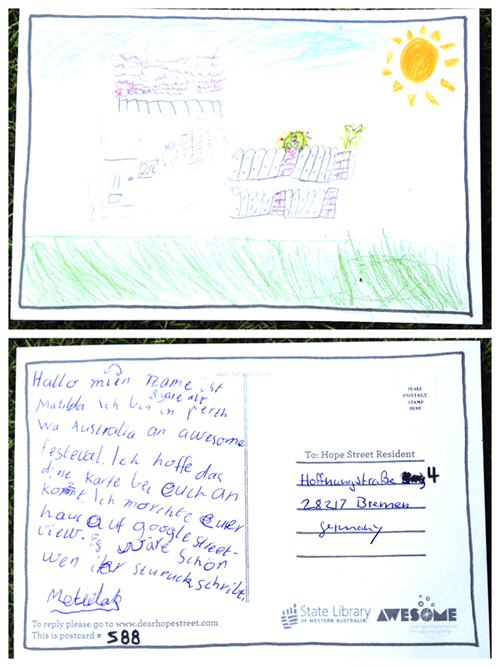 29
Hallo mien name ist
8 yare alt
Matilda Ich bin in perth
Wa Australia an awesome
festeval. Ich hoffe das
diese karte bei euch an
kommt Ich morchte euer
haus auf google street-
view. Es wäre schön
wen ihr sturuck schribt
Matilda
To reply please go to www.dearhopestreet.com
This is postcard # 588
PLACE
POSTAGE
STAMP
HERE
To: Hope Street Resident
Hoffnungstraße 4
28217 Bremen
Germany
State Library
OF WESTERN AUSTRALIA
AWESOME